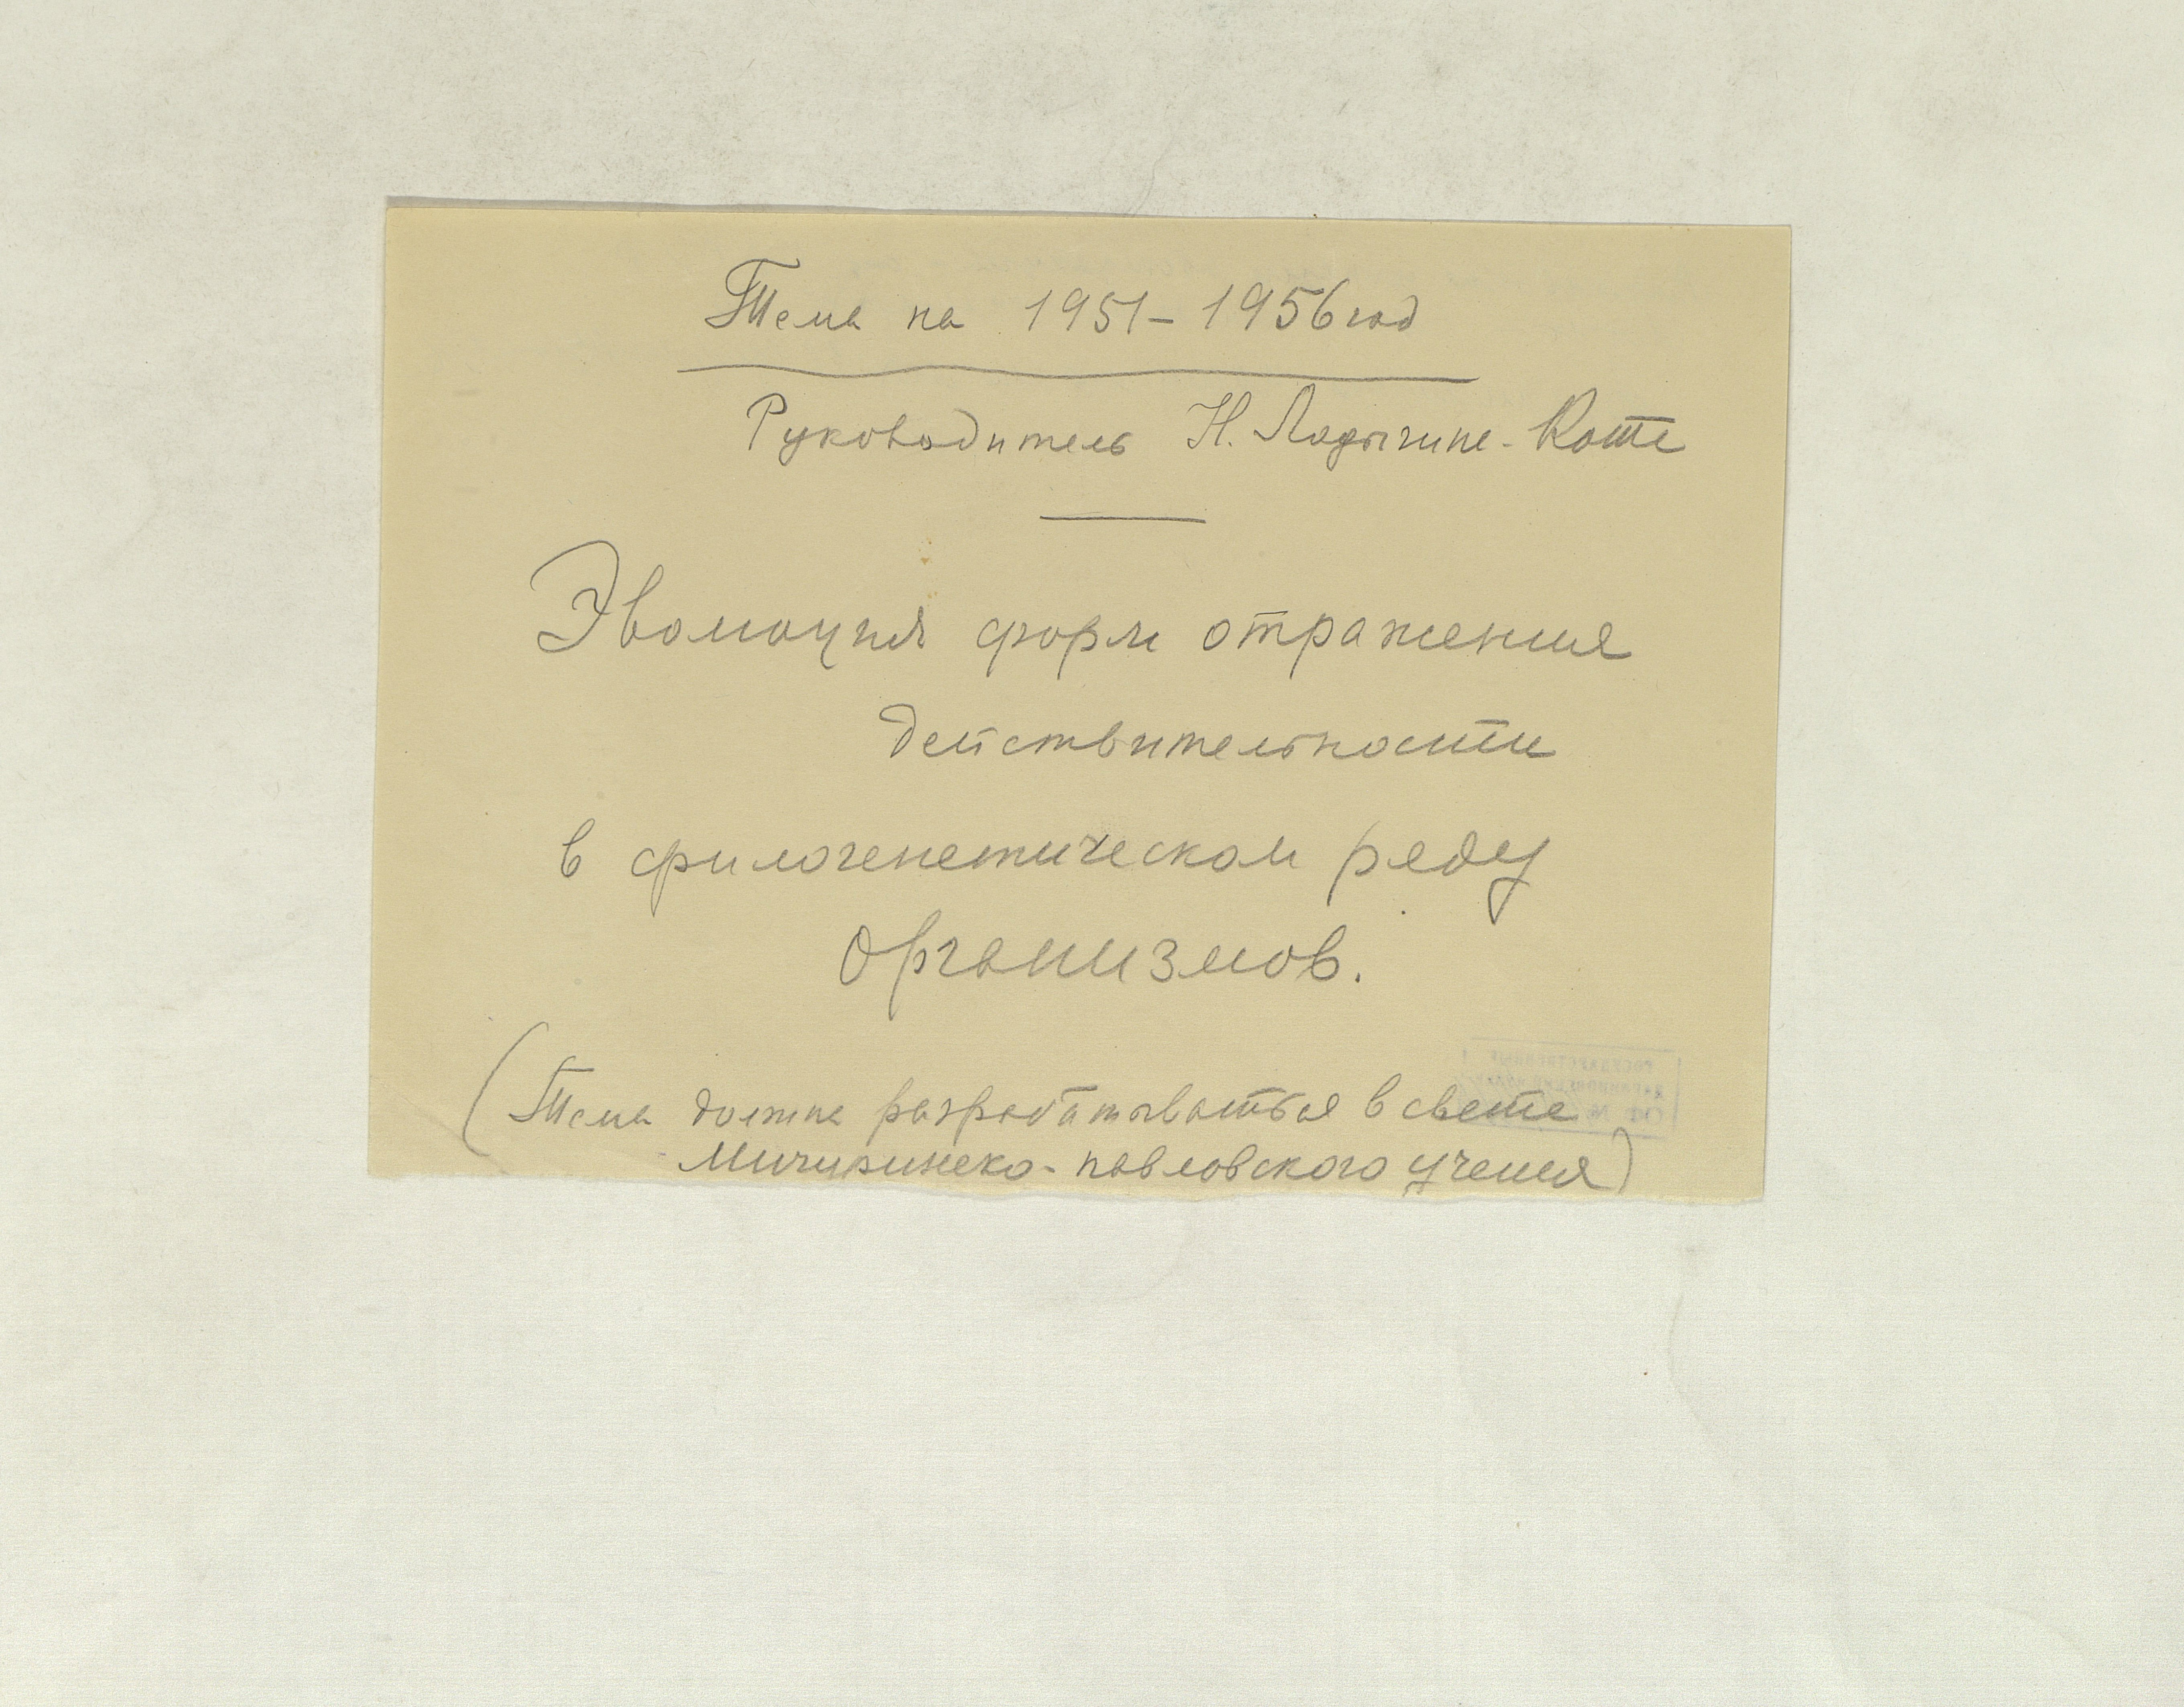 Тема на 1951–1956 год
Руководитель Н. Ладыгина-Котс
Эволюция форм отражения
действительности
в филогенетическом ряду
организмов.
(Тема должна разрабатываться в свете
Мичуринско-павловского учения)